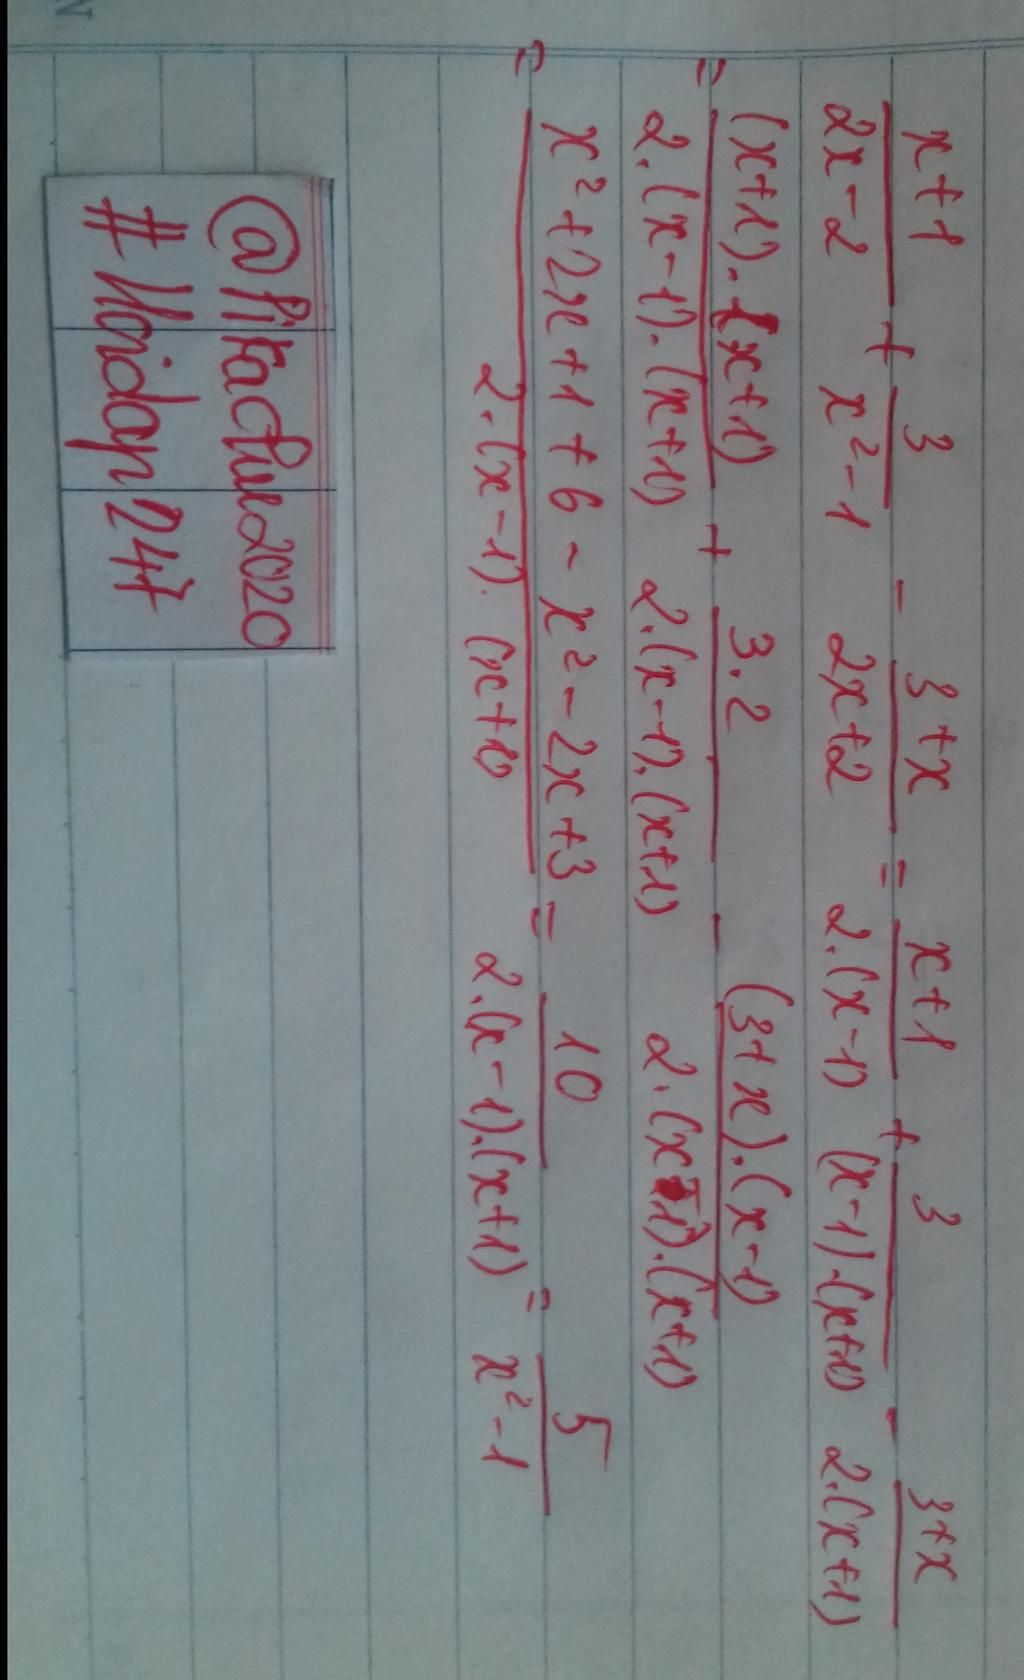 x+1/2x-2 + 3/x²-1 - 3+x/2x+2 = x+1/2.(x-1) + 3/(x-1).(x+1) - 3+x/2.(x+1)
= (x+1).(x+1)/2.(x-1).(x+1) + 3.2/2.(x-1).(x+1) - (3+x).(x-1)/2.(x-1).(x+1)
= x²+2x+1+6-x²-2x+3/2.(x-1).(x+1) = 10/2.(x-1).(x+1) = 5/x²-1
@Pikachue2020
#Hoidap247